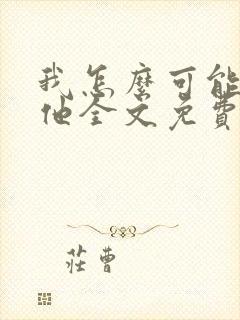 我怎麼可能
他全文免費
莊曹